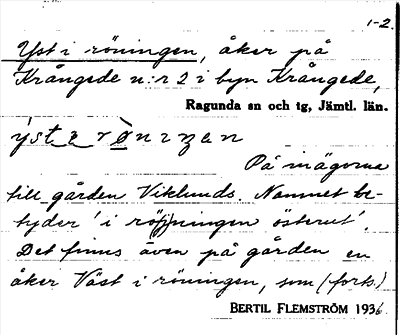 1-2.
Yst i röningen, åker på
Krångede n:r 2 i byn Krångede,
Ragunda sn och tg, Jämtl. län.
På inägorna
till gården Viklunds. Namnet be-
tyder 'i rö(j)ningen österut'.
Det finns även på gården en
åker Väst i röningen, som (forts.)
BERTIL FLEMSTRÖM 1936